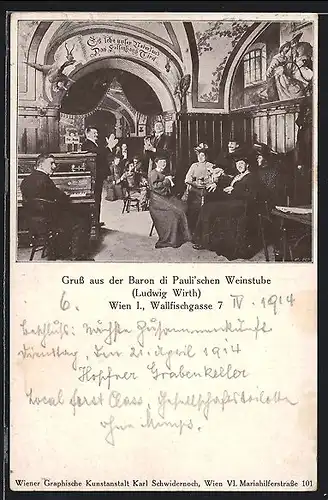 Gruß aus der Baron di Pauli'schen Weinstube
(Ludwig Wirth)
Wien I., Wallfischgasse 7
6. IV. 1914
Nächste Zusammenkunft
Dienstag, den 21. April 1914
Hopfner Grabenkeller
Local first Class, Gesellschaftstoilette
ohne
Wiener Graphische Kunstanstalt Karl Schwidernoch, Wien VI. Mariahilferstraße 101